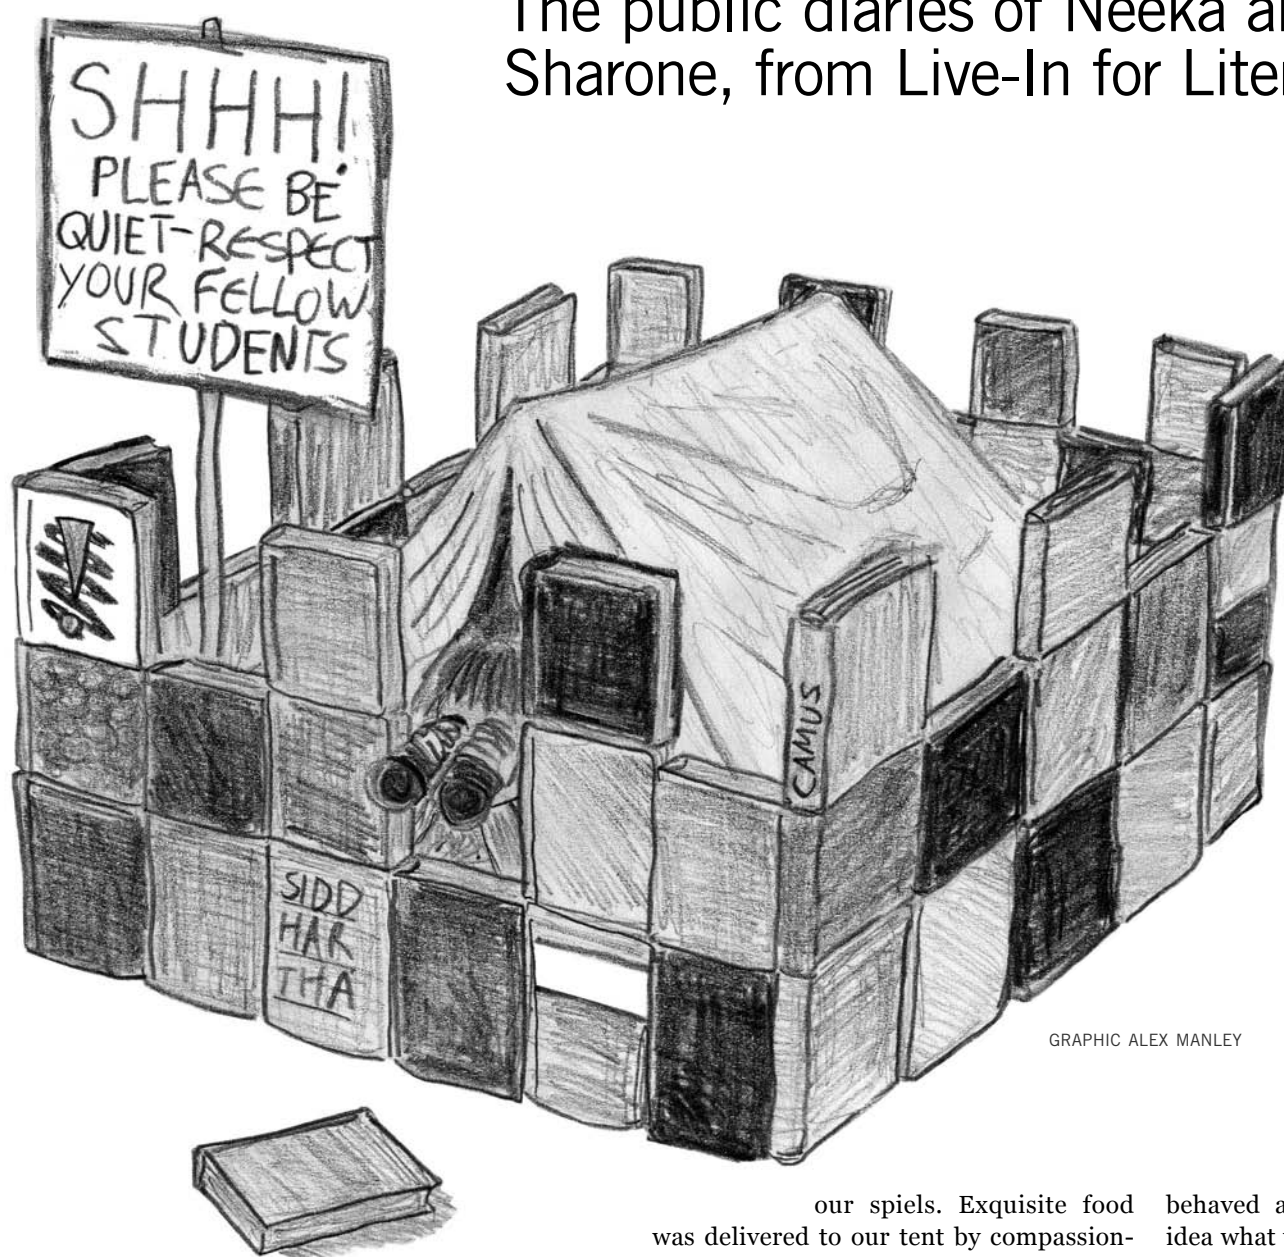 The public diaries of Neeka
Sharone, from Live-In for
SHHH!
PLEASE BE
QUIET-RESPECT
YOUR FELLOW
STUDENTS
CAMUS
SIDD
HAR
THA
GRAPHIC ALEX MANLEY
our spiels. Exquisite food
was delivered to our tent by compassion-
behaved
idea what